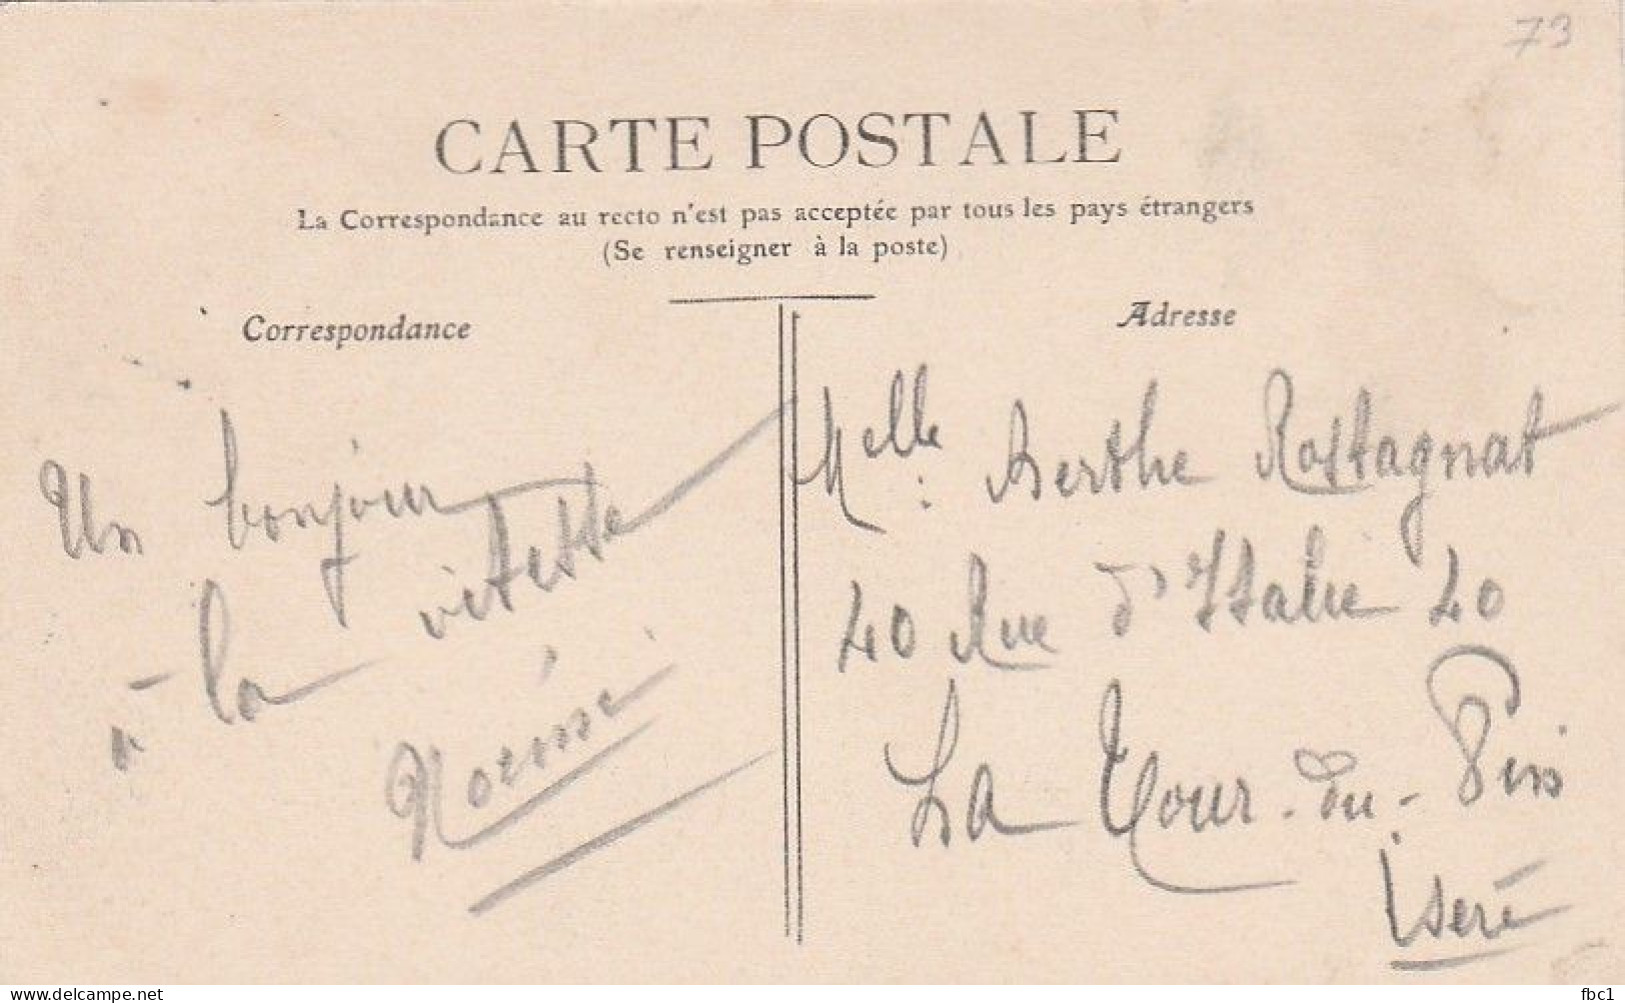 73
CARTE POSTALE
La Correspondance au recto n'est pas acceptée par tous les pays étrangers
(Se renseigner à la poste)
Correspondance
Un bonjour
à la vitesse
Noémi
Adresse
Melle : Berthe Rostagnat
40 Rue d'Italie 40
La Tour-du-Pin
Isère
www.delcampe.net
fbc1